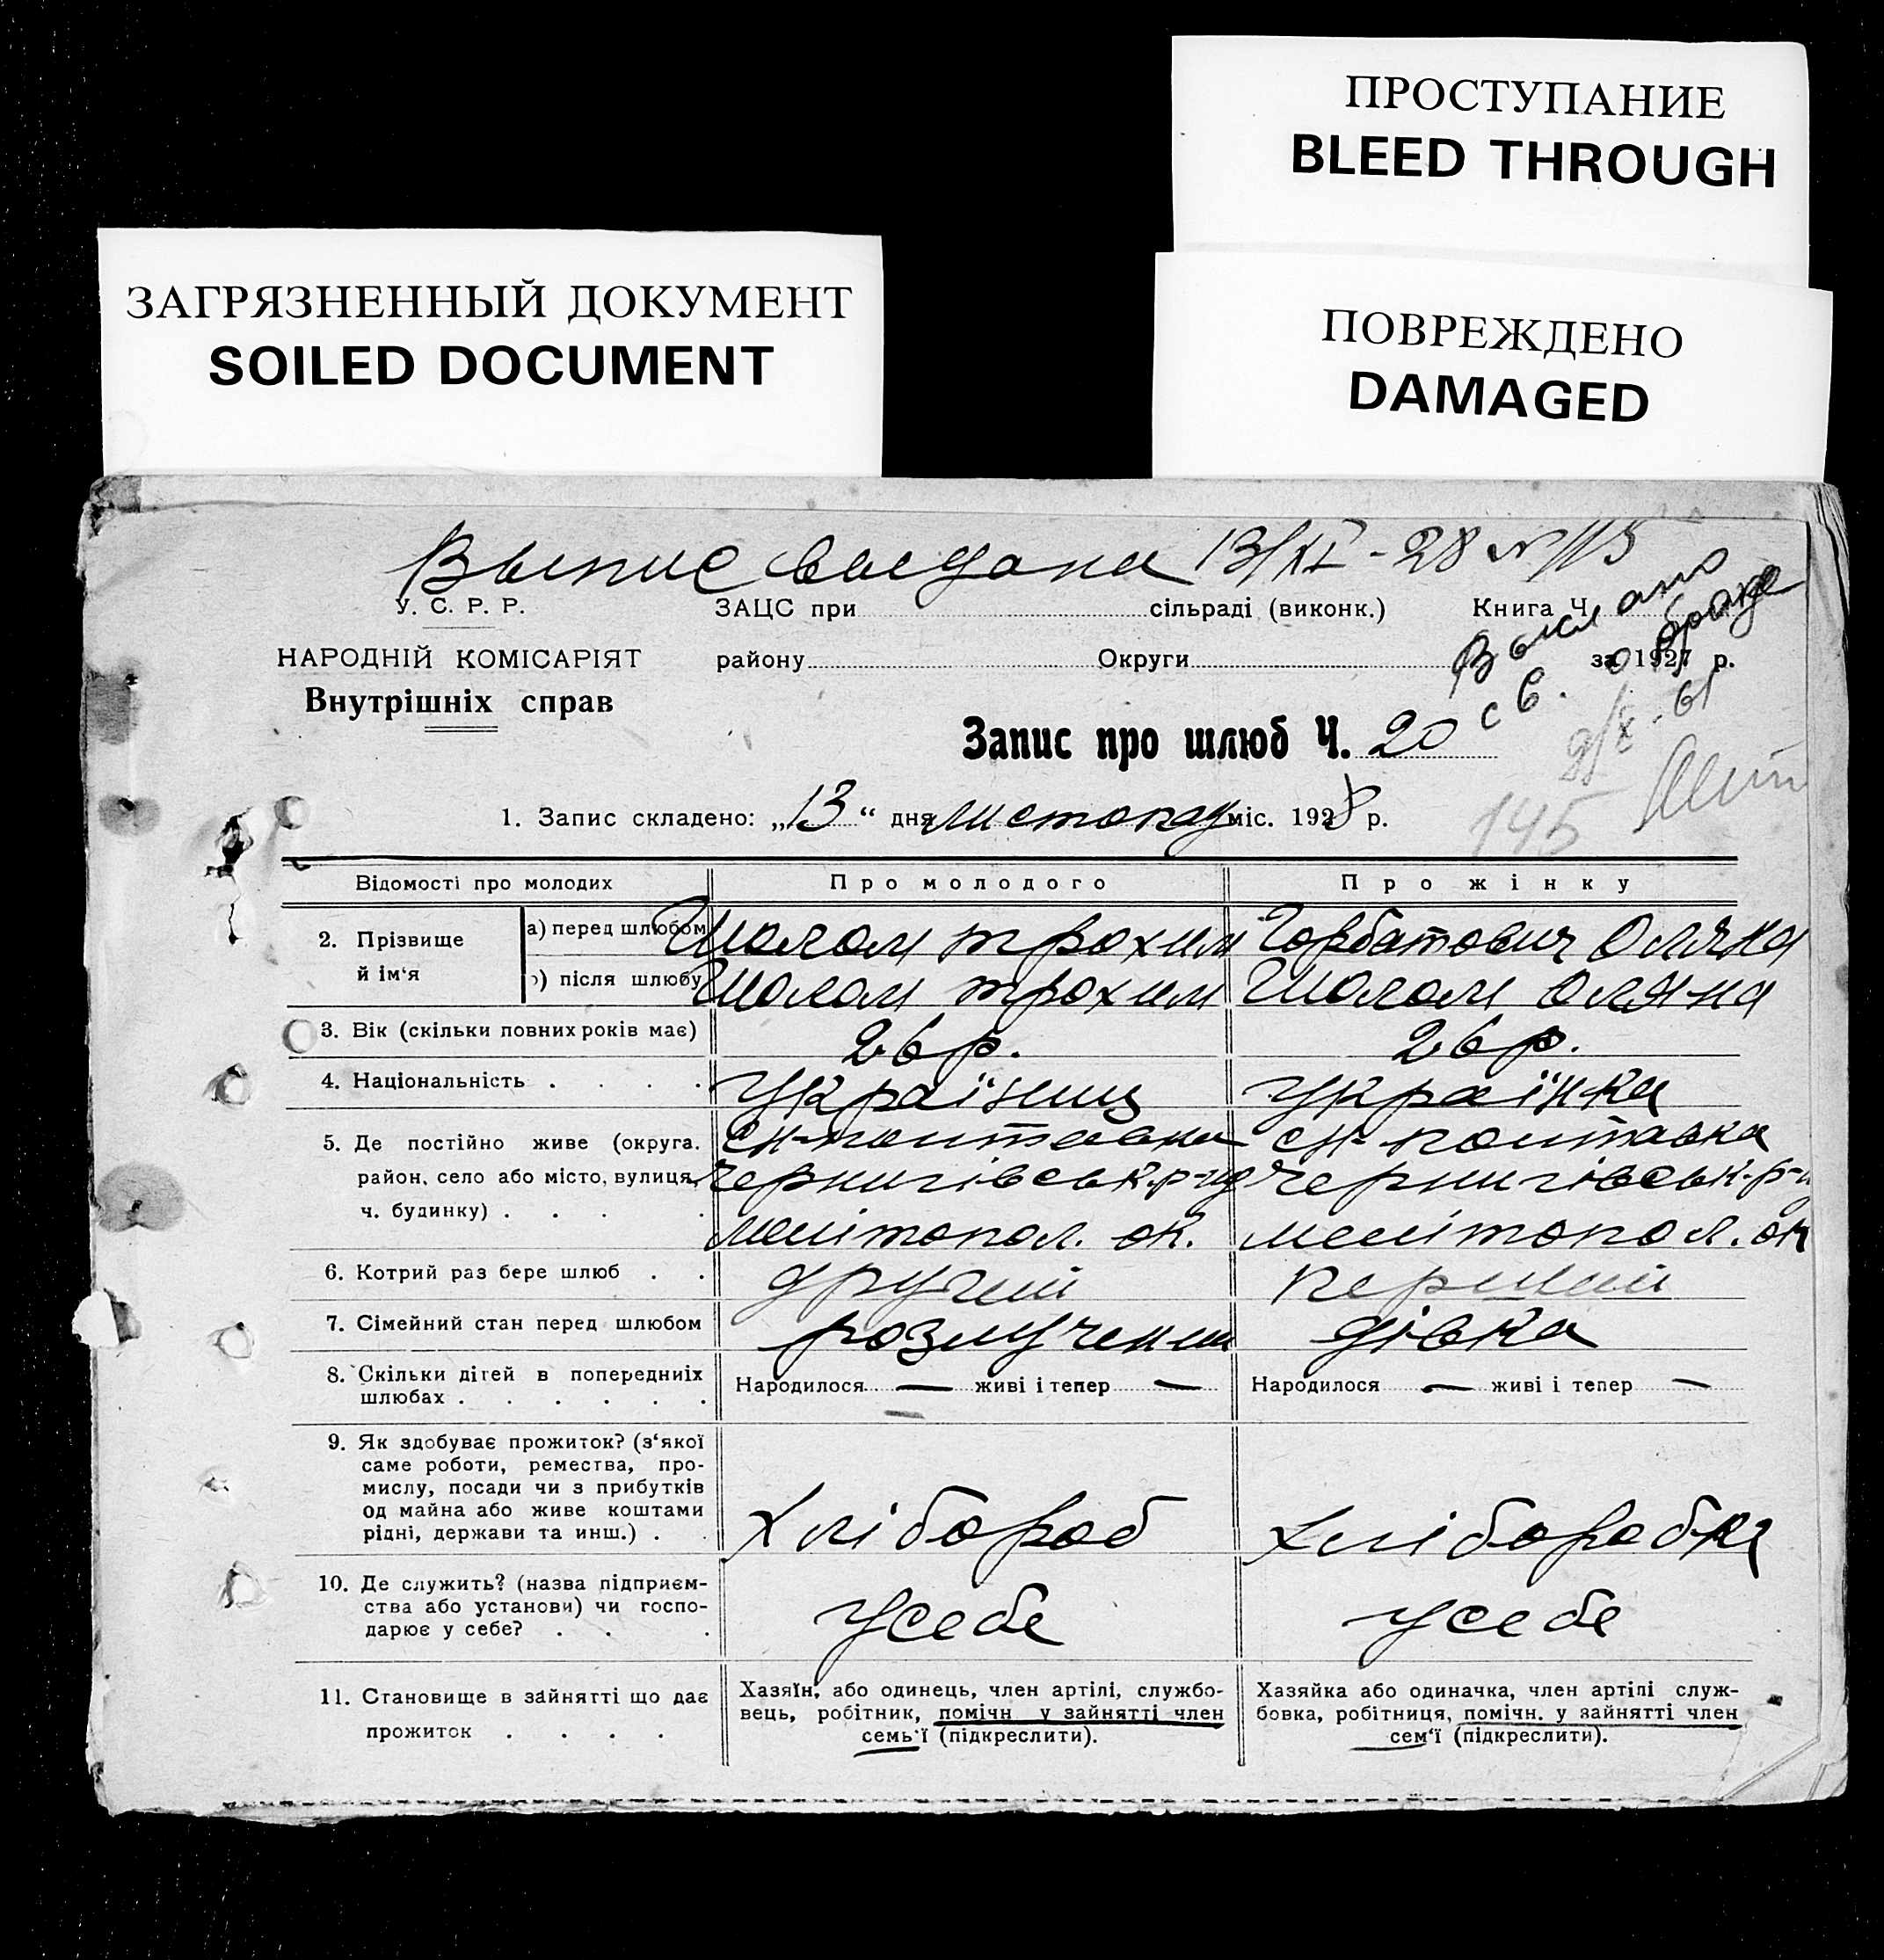 ПРОСТУПАНИЕ
BLEED THROUGH
ЗАГРЯЗНЕННЫЙ ДОКУМЕНТ
SOILED DOCUMENT
ПОВРЕЖДЕНО
DAMAGED
Выпис выдана 13/XI - 28 N 115
У. С. Р. Р.
НАРОДНІЙ КОМІСАРІЯТ
Внутрішніх справ
ЗАЦС при сільраді (виконк.) Книга Ч.
району Округи за 1927 р.
Выслано
св. о браке
9/X - 61
Запис про шлюб Ч. 20
145
1. Запис складено: „13“ дня листопад міс. 1928 р.
Відомості про молодих Про молодого Про жінку
2. Прізвище й ім‘я
а) перед шлюбом Шолом трохим Горбатович Оляна
б) після шлюбу Шолом трохим Шолом Оляна
3. Вік (скільки повних років має) 26 р. 26 р.
4. Національність . . . . Українць Українка
5. Де постійно живе (округа. район, село або місто, вулиця, ч. будинку) . . . .
сн-полтавка сн-полтавка
Чернигівськ. р-ну Чернигівськ. р-н
мелітопол. ок. мелітопол. ок
6. Котрий раз бере шлюб . . другий перший
7. Сімейний стан перед шлюбом розлучений дівка
8. Скільки дітей в попередниіх шлюбах . . . . . .
Народилося — живі і тепер — Народилося — живі і тепер —
9. Як здобуває прожиток? (з‘якої
саме роботи, ремества, про-
мислу, посади чи з прибутків
од майна або живе коштами
рідні, держави та инш.) . .
Хлібороб хліборобка
10. Де служить? (назва підприєм-
ства або установи) чи госпо-
дарює у себе? . . .
усебе усебе
11. Становище в зайнятті що дає
прожиток . . . .
Хазяїн, або одинець, член артілі, службо-
вець, робітник, помічн у зайнятті член
семь‘ї (підкреслити).
Хазяйка або одиначка, член артілі служ-
бовка, робітниця, помічн. у зайнятті член
сем‘ї (підкреслити).